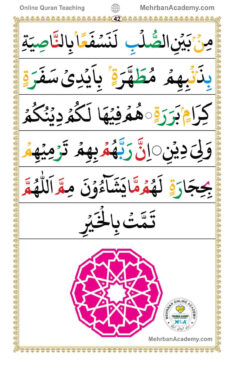 Online Quran Teaching MehrbanAcademy.com
42
مِنْۢ بَيْنِ الصُّلْبِ لَنَسْفَعًۢا بِالنَّاصِيَةِ
بِذَنْۢبِهِمْ مُطَهَّرَةٍۭ بِاَيْدِىْ سَفَرَةٍ
كِرَامٍۭ بَرَرَةٍ ○ هُمْ فِيْهَا لَكُمْ دِيْنُكُمْ
وَلِىَ دِيْنِ ○ اِنَّ رَبَّهُمْ بِهِمْ تَرْمِيْهِمْ
بِحِجَارَةٍ لَهُمْ مَّا يَشَآءُوْنَ مِمَّ اَللّٰهُمَّ
تَمَّتْ بِالْخَيْرِ
MehrbanAcademy.com